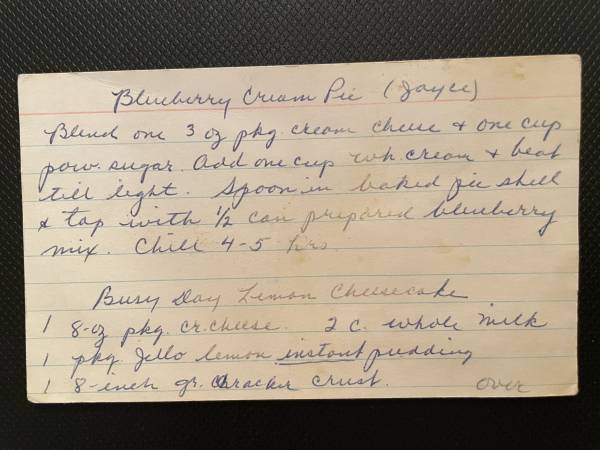 Blueberry Cream Pie (Joyce)
Blend one 3 oz pkg. cream cheese & one cup
pow. sugar. Add one cup wh. cream & beat
till light. Spoon in baked pie shell
& top with 1/2 can prepared blueberry
mix. Chill 4-5 hrs.
Busy Day Lemon Cheesecake
1 8-oz pkg. cr. cheese. 2 c. whole milk
1 pkg. Jello lemon instant pudding
1 8-inch gr. cracker crust.
over